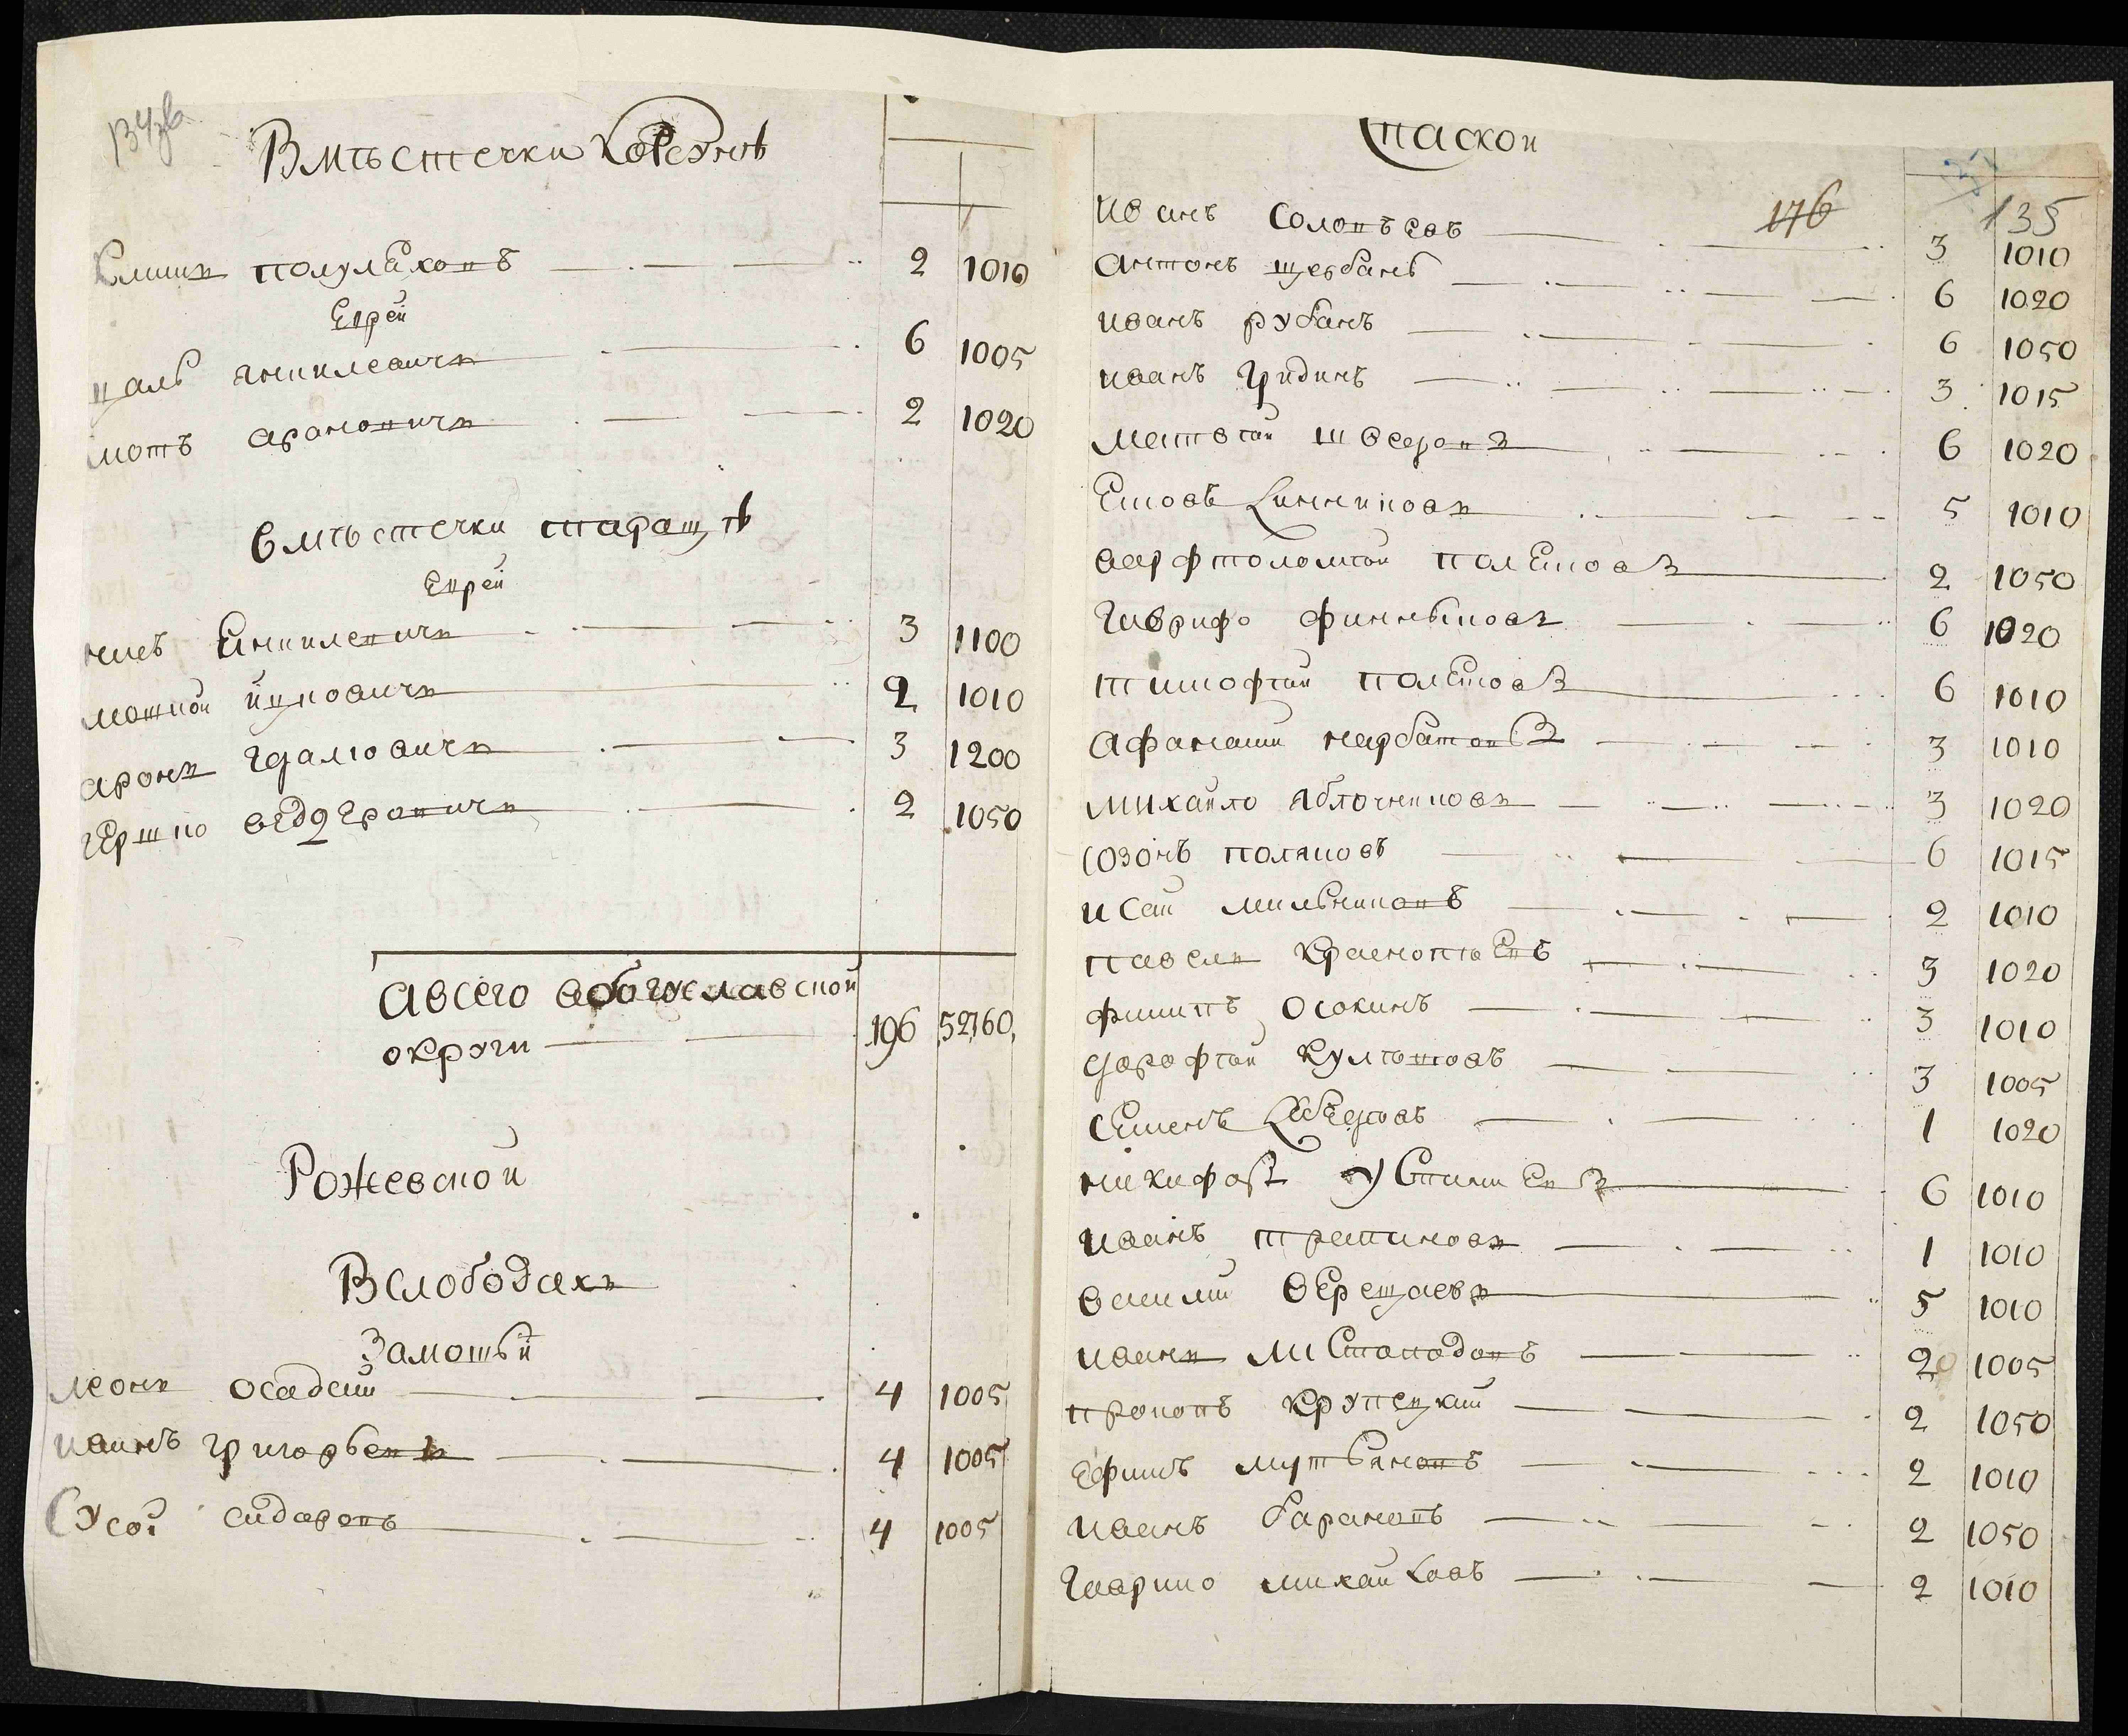 134 об
Вмѣстечки Корсунѣ
Климъ полулѣховъ 2 1010
Еврей
янкилевичъ 6 1005
мотъ ароновичъ 2 1020
вмѣстечки таращѣ
Еврей
Енкилевичъ 3 1100
мошкой ицковичъ 2 1010
аронъ 3 1200
гершко 2 1050
Авсего вбогуславской
округи 196 52760
Рожевской
Вслободахъ
Замошьй
леонъ осадсий 4 1005
иванъ григорьевъ 4 1005
Сусой сидаровъ 4 1005
Спаской
176 135
иванъ Солопъевъ 3 1010
антонъ щербанъ 6 1020
иванъ рубанъ 6 1050
иванъ гридинъ 3 1015
матвѣй шведовъ 6 1020
5 1010
варфтоломѣй полѣковъ 2 1050
гаврифо 6 1020
тимофѣй полѣковъ 6 1010
афанасий карбатовъ 3 1010
михайло яблочниковъ 3 1020
Созонъ поляковъ 6 1015
исай мильниковъ 2 1010
павелъ краснопѣевъ 3 1020
филипъ осокинъ 3 1010
дарофѣй 3 1005
Семенъ 1 1020
никифоръ устимевъ 6 1010
иванъ 1 1010
василий верещаевъ 5 1010
иванъ листопадовъ 2 1005
прокопъ крупецкий 2 1050
ефимъ мутьяновъ 2 1010
иванъ барановъ 2 1050
гаврило михайловъ 2 1010